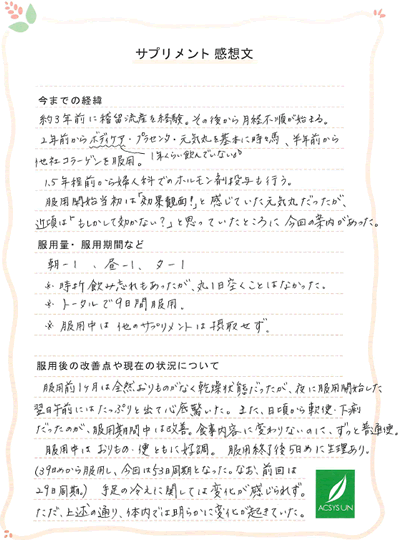 サプリメント 感想文
今までの経緯
約3年前に稽留流産を経験。その後から月経不順が始まる。
2年前からボディケア・プラセンタ・元気丸を基本に時々馬、半年前から
他社コラーゲンを服用。 1年くらい飲んでいないが
1.5年程前から婦人科でのホルモン剤投与も行う。
服用開始当初は「効果観面!」と感じていた元気丸だったが、
近頃は「もしかして効かない?」と思っていたところに今回の案内があった。
服用量・服用期間など
朝-1、昼-1、夕-1
※ 時折飲み忘れもあったが、丸1日空くことはなかった。
※ トータルで9日間服用。
※ 服用中は他のサプリメントは摂取せず。
服用後の改善点や現在の状況について
服用前1ヶ月は全然おりものがなく乾燥状態だったが、夜に服用開始した
翌日午前にはたっぷりと出て心底驚いた。また、日頃から軟便・下痢
だったのが、服用期間中は改善。食事内容に変わりないのに、ずっと普通便。
服用中はおりもの・便ともに好調。 服用終了後5日めに生理あり。
(39日めから服用し、今回は53日周期となった。なお、前回は
29日周期。) 手足の冷えに関しては変化が感じられず。
ただ、上述の通り、体内では明らかに変化が起きていた。
ACSYSUN